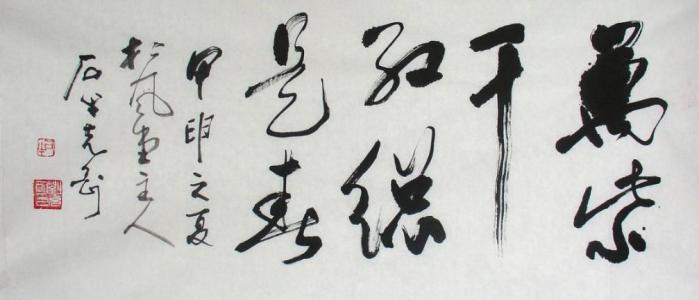 萬紫
千
紅總
是春
甲申之夏
松風堂主人